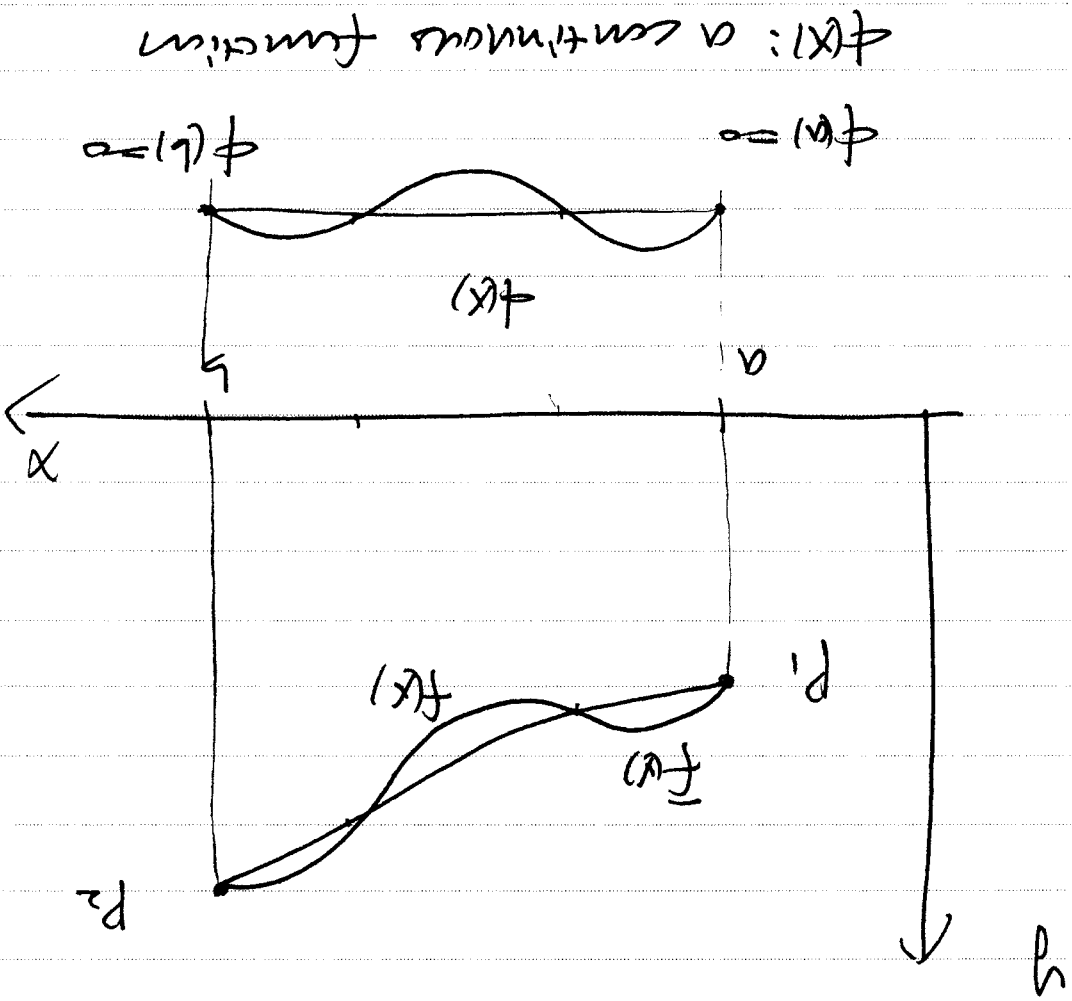 y
P₂
f̄(x)
f(x)
P₁
x
a
b
φ(x)
φ(a)=0
φ(b)=0
φ(x): a continuous function